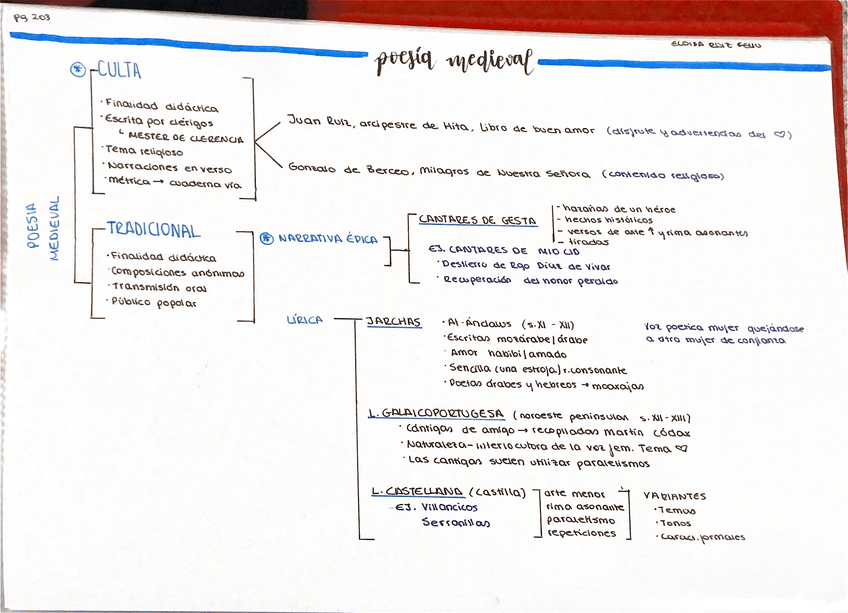 pg 203
ELOISA RUIZ FELIU
poesía medieval
POESIA
MEDIEVAL
* CULTA
· Finalidad didáctica
· Escrita por clérigos
└ MESTER DE CLERENCIA
· Tema religioso
· Narraciones en verso
· métrica → cuaderna vía
Juan Ruiz, arcipestre de Hita, Libro de buen amor (disfrute y advertencias del ♡)
Gonzalo de Berceo, Milagros de Nuestra Señora (contenido religioso)
TRADICIONAL
· Finalidad didáctica
· Composiciones anónimas
· Transmisión oral
· Público popular
* NARRATIVA ÉPICA
CANTARES DE GESTA
- hazañas de un héroe
- hechos históricos
- versos de arte ↑ y rima asonantes
- tiradas
EJ. CANTARES DE MIO CID
· Destierro de Rgo Díaz de Vivar
· Recuperación del honor perdido
LÍRICA
JARCHAS
· Al-Ándalus (s.XI - XII)
· Escritas mozárabe/árabe
· Amor habibi/amado
· Sencilla (una estrofa) r.consonante
· Poetas árabes y hebreos → moaxajas
Voz poetica mujer quejándose
a otra mujer de confianza
L. GALAICOPORTUGESA (noroeste peninsular s. XII - XIII)
· Cántigas de amigo → recopiladas Martín Códax
· Naturaleza - interlocutora de la voz fem. Tema ♡
· Las cantigas suelen utilizar paralelismos
L. CASTELLANA (Castilla)
- EJ. Villancicos
Serranillas
arte menor
rima asonante
paralelismo
repeticiones
VARIANTES
· Temas
· Tonos
· Caract. formales